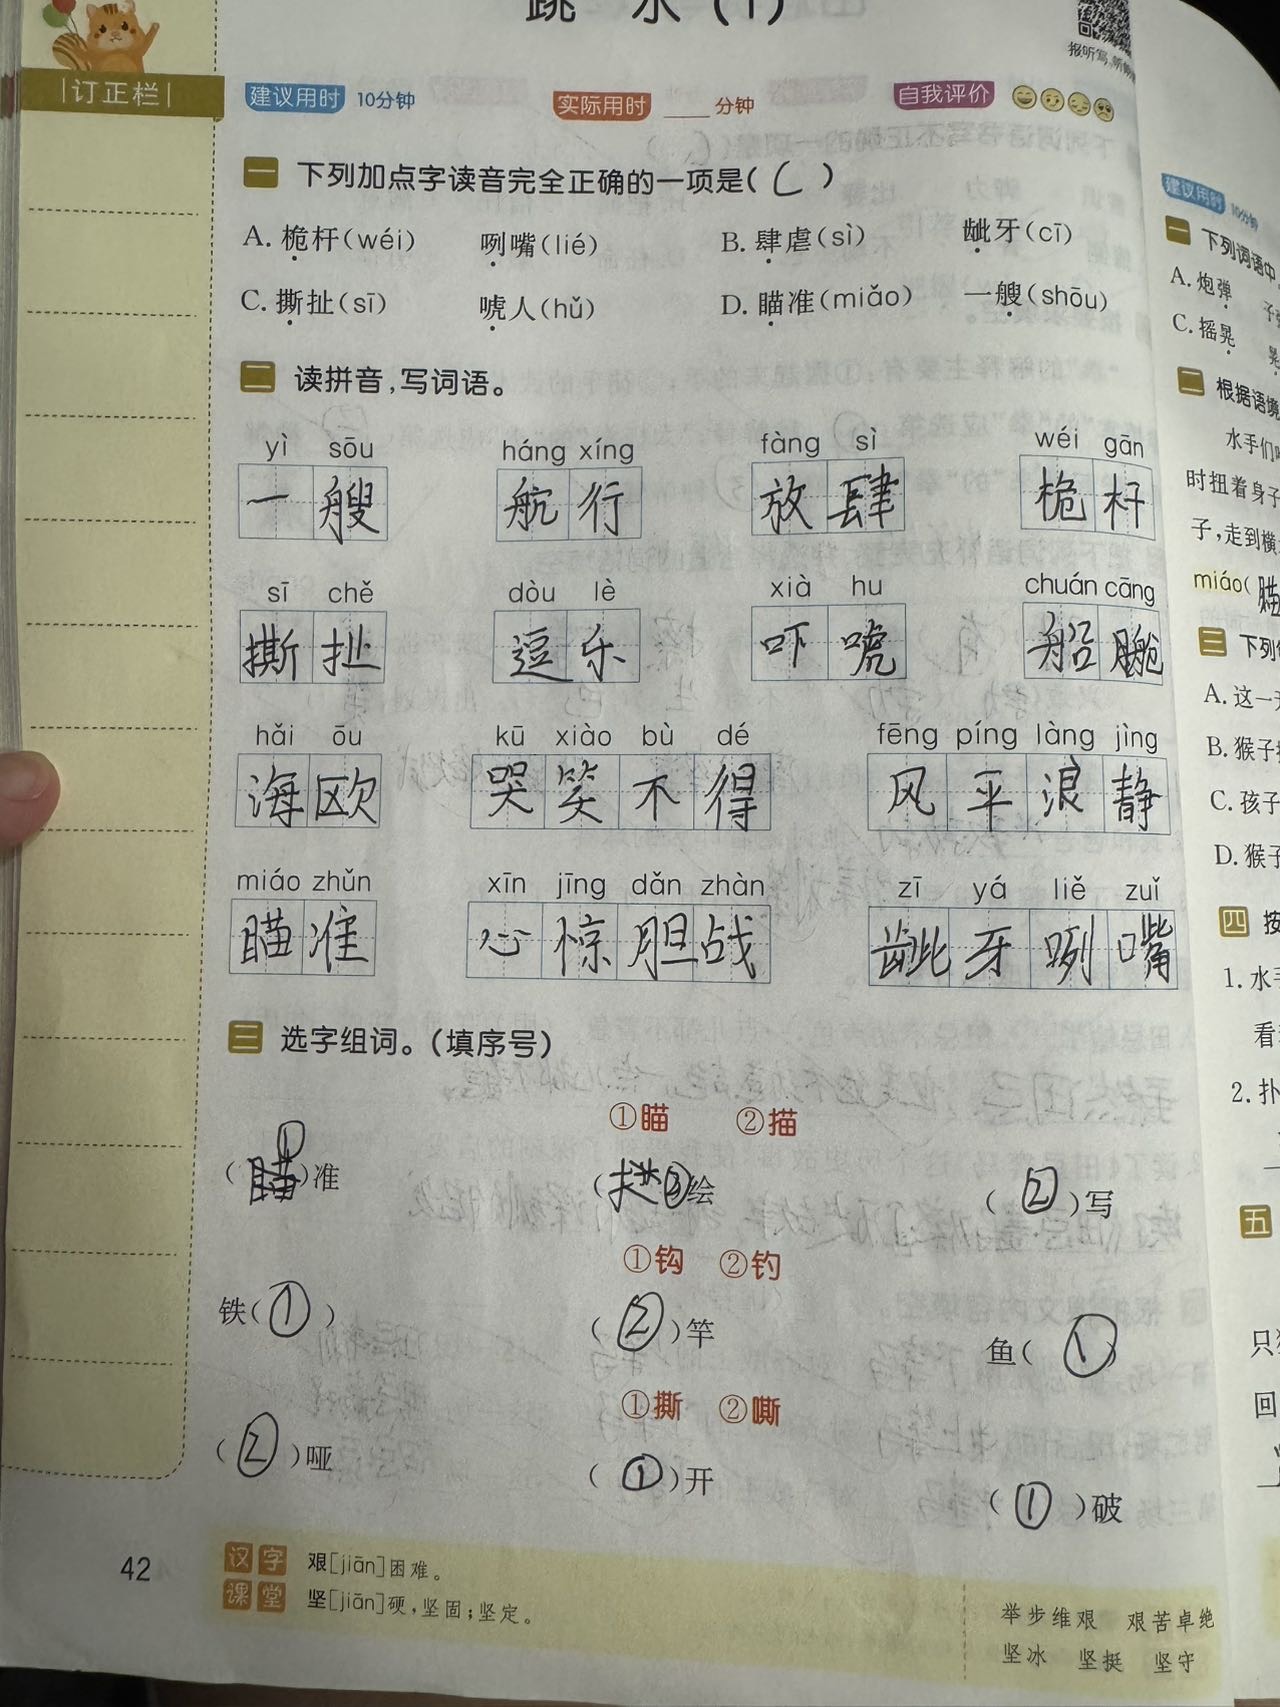 跳 水（1）
报听写
订正栏
建议用时 10分钟 实际用时 ____分钟 自我评价
一 下列加点字读音完全正确的一项是( C )
A.桅杆(wéi) 咧嘴(lié) B.肆虐(sì) 龇牙(cī)
C.撕扯(sī) 唬人(hǔ) D.瞄准(miǎo) 一艘(shōu)
二 读拼音,写词语。
yì sōu háng xíng fàng sì wéi gān
一艘 航行 放肆 桅杆
sī chě dòu lè xià hu chuán cāng
撕扯 逗乐 吓唬 船舱
hǎi ōu kū xiào bù dé fēng píng làng jìng
海欧 哭笑不得 风平浪静
miáo zhǔn xīn jīng dǎn zhàn zī yá liě zuǐ
瞄准 心惊胆战 龇牙咧嘴
三 选字组词。(填序号)
①瞄 ②描
(①)准 (②)绘 (②)写
①钩 ②钓
铁(①) (②)竿 鱼(①)
①撕 ②嘶
(②)哑 (①)开 (①)破
42
汉字课堂
艰[jiān]困难。
坚[jiān]硬,坚固;坚定。
举步维艰 艰苦卓绝
坚冰 坚挺 坚守
建议用时 10分钟
一 下列词语中
A.炮弹
C.摇晃
二 根据语境
水手们
时扭着身子
子,走到横
miáo(瞄
三 下列
A.这一
B.猴子
C.孩子
D.猴子
四 按
1.水手
看
2.扑
五
只
回